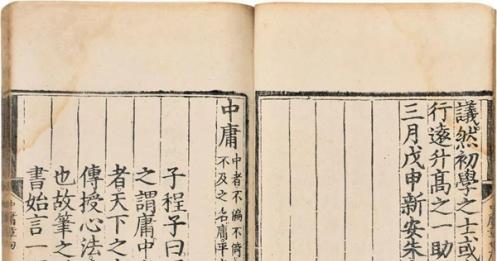 議然初學之士或
行遠升高之一助
三月戊申新安朱
中庸
中者不偏不倚
不及之名庸平
子程子曰
之謂庸中
者天下之
傳授心法
也故筆之
書始言一
中庸章句